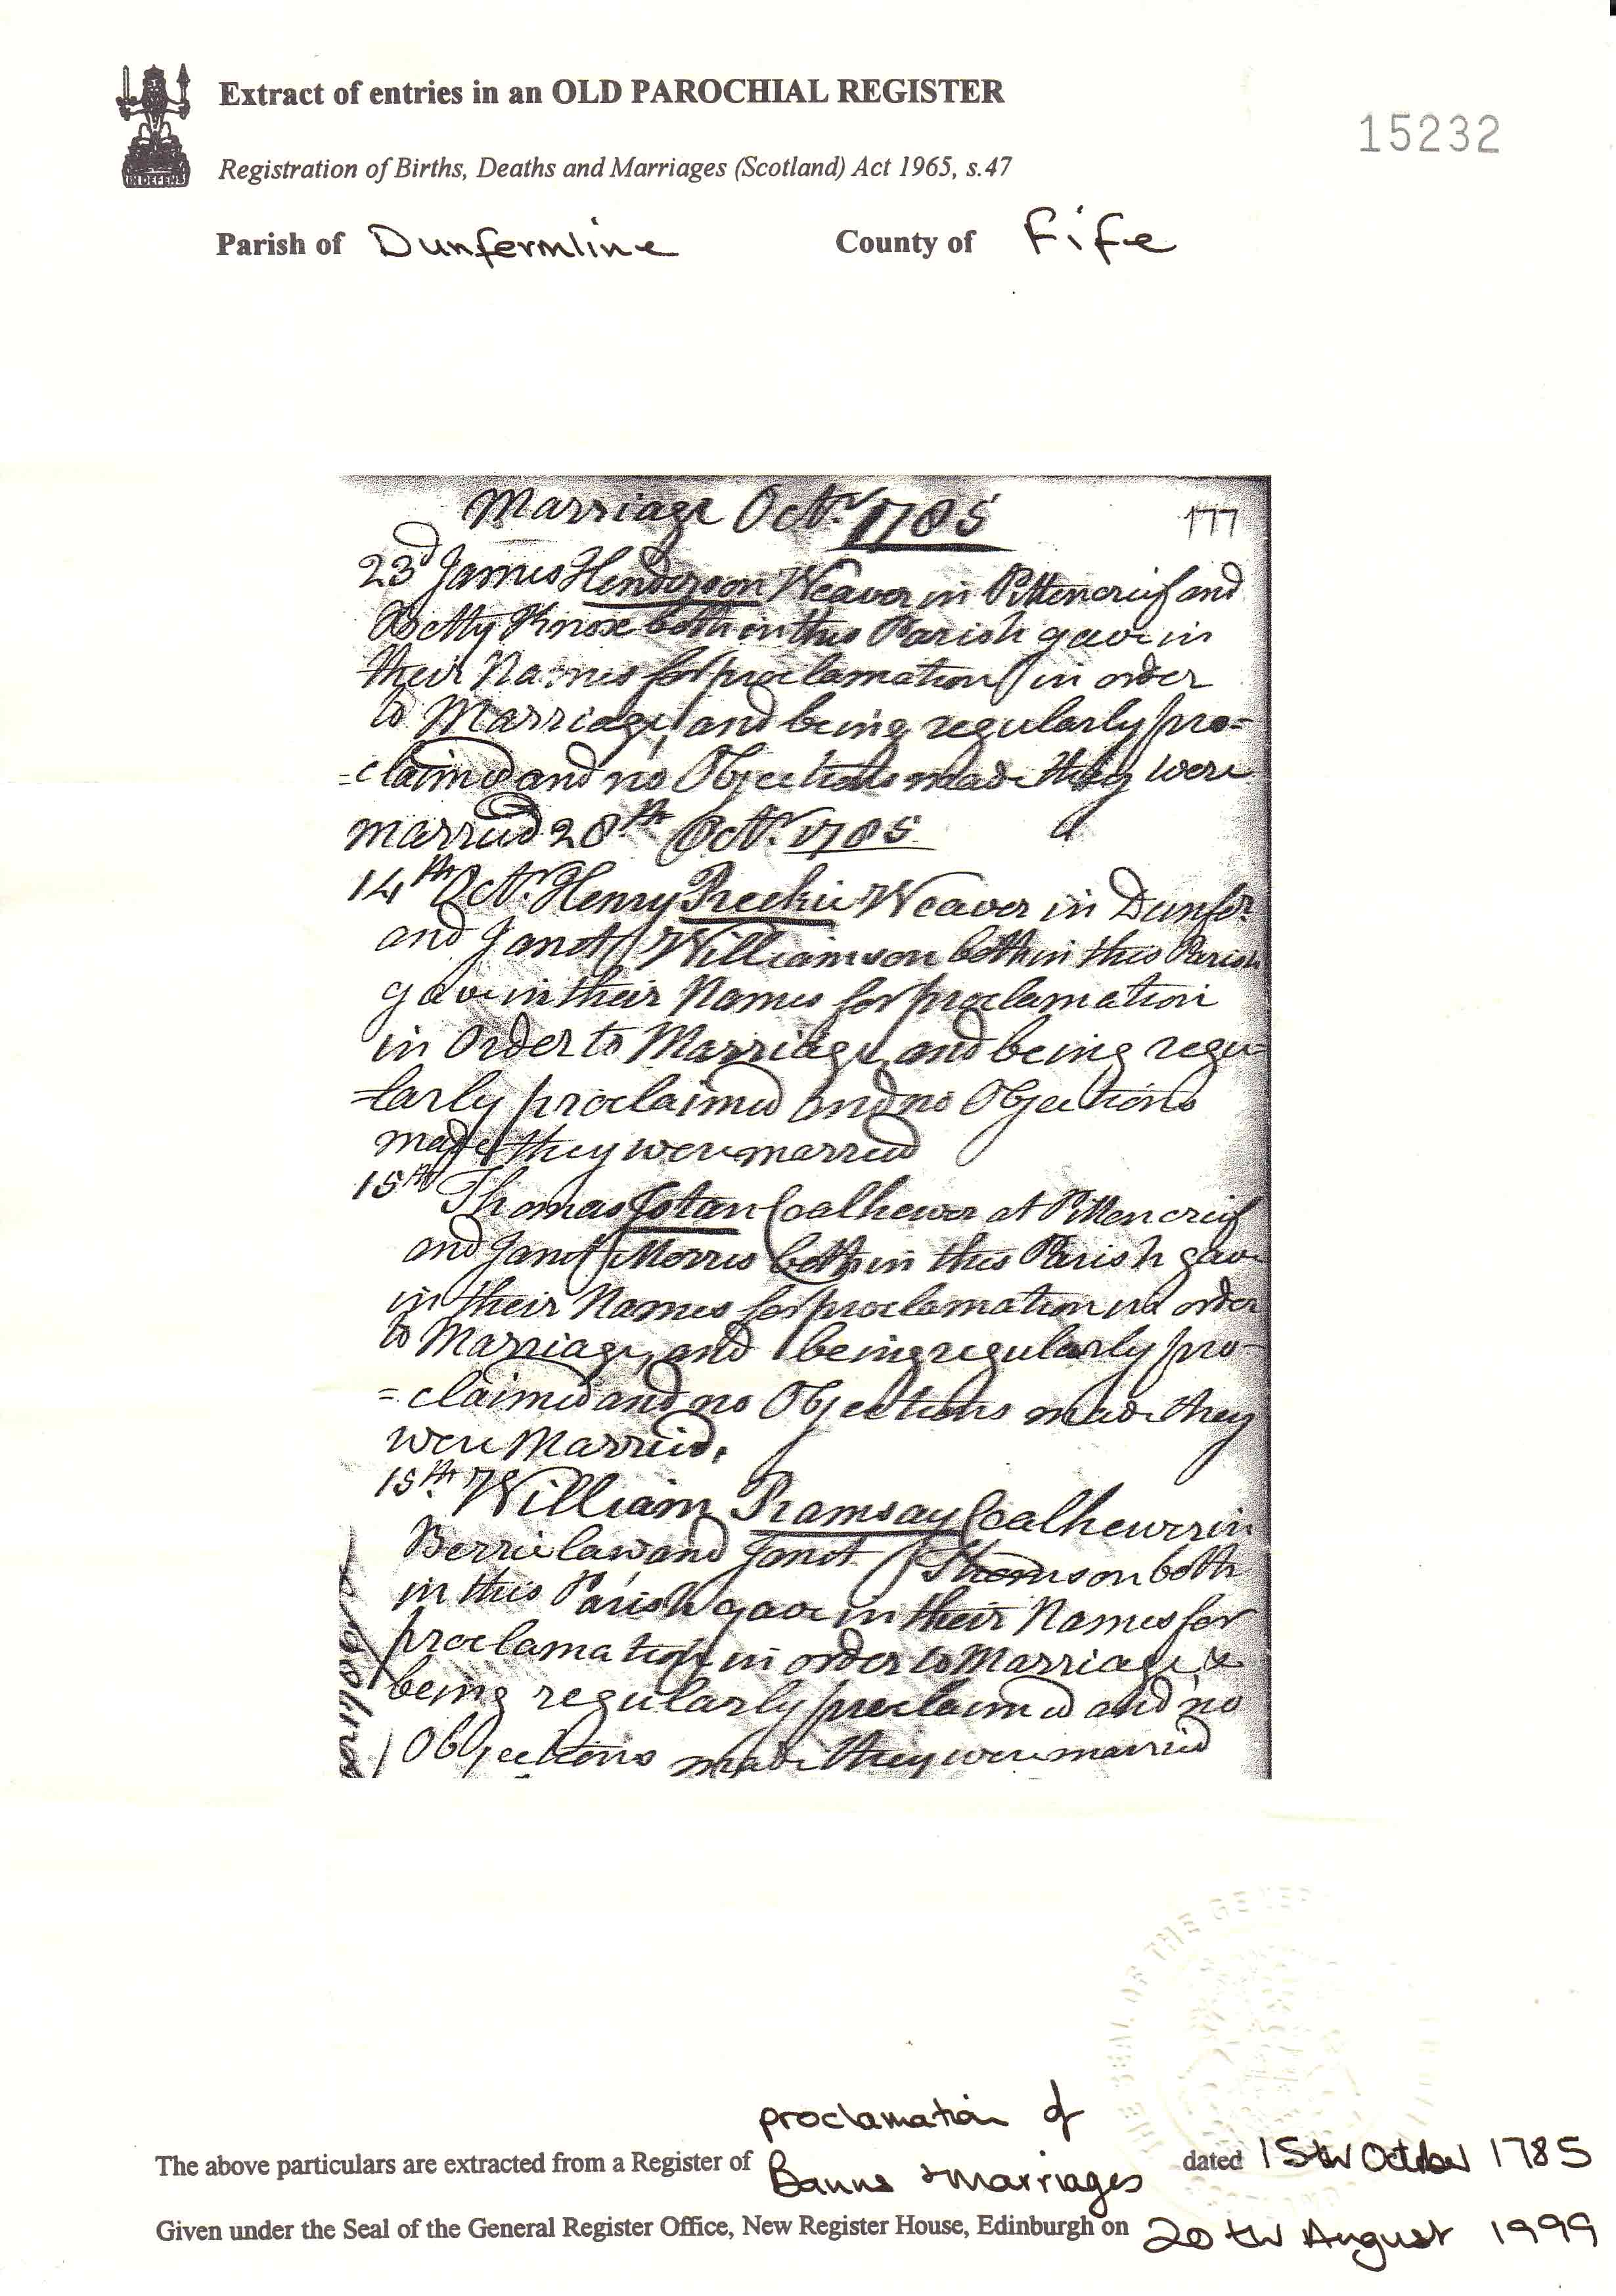 Extract of entries in an OLD PAROCHIAL REGISTER
15232
Registration of Births, Deaths and Marriages (Scotland) Act 1965, s.47
IN DEFENS
Parish of Dunfermline County of Fife
Marriage Octr. 1785 177
23d James Henderson Weaver in Pittencrief and
Betty Knox both in this Parish gave in
their Names for proclamation in order
to Marriage, and being regularly pro=
=claimed and no Objections made they were
married 28th Octr. 1785.
14th Octr. Henry Reekie Weaver in Dunfer.
and Janet Williamson both in this Parish
gave in their Names for proclamation
in Order to Marriage, and being regu=
=larly proclaimed and no Objections
made they were married
15th Thomas Coalhewer at Pittencrief
and Janet Morris both in this Parish gave
in their Names for proclamation in order
to Marriage, and being regularly pro=
=claimed and no Objections made they
were Married.
15th. William Ramsay Coalhewer in
Berrielaw and Janet Thomson both
in this Parish gave in their Names for
proclamation in order to Marriage, &
being regularly proclaimed and no
Objections made they were married
THE SEAL OF THE GENER
proclamation of
The above particulars are extracted from a Register of Banns & Marriages dated 15th October 1785
Given under the Seal of the General Register Office, New Register House, Edinburgh on 20th August 1999